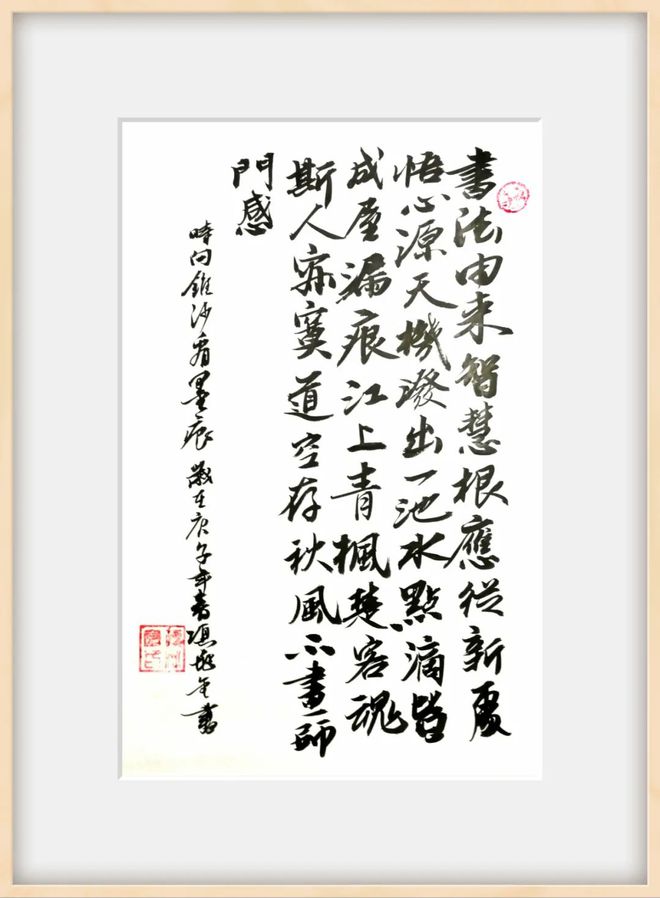 書法由来智慧根應從新處
悟心源天機潑出一池水點滴皆
成屋漏痕江上青楓楚客魂
斯人寂寞道空存秋風不盡師
門感
時向錐沙看墨痕 歲在庚子年春馮書